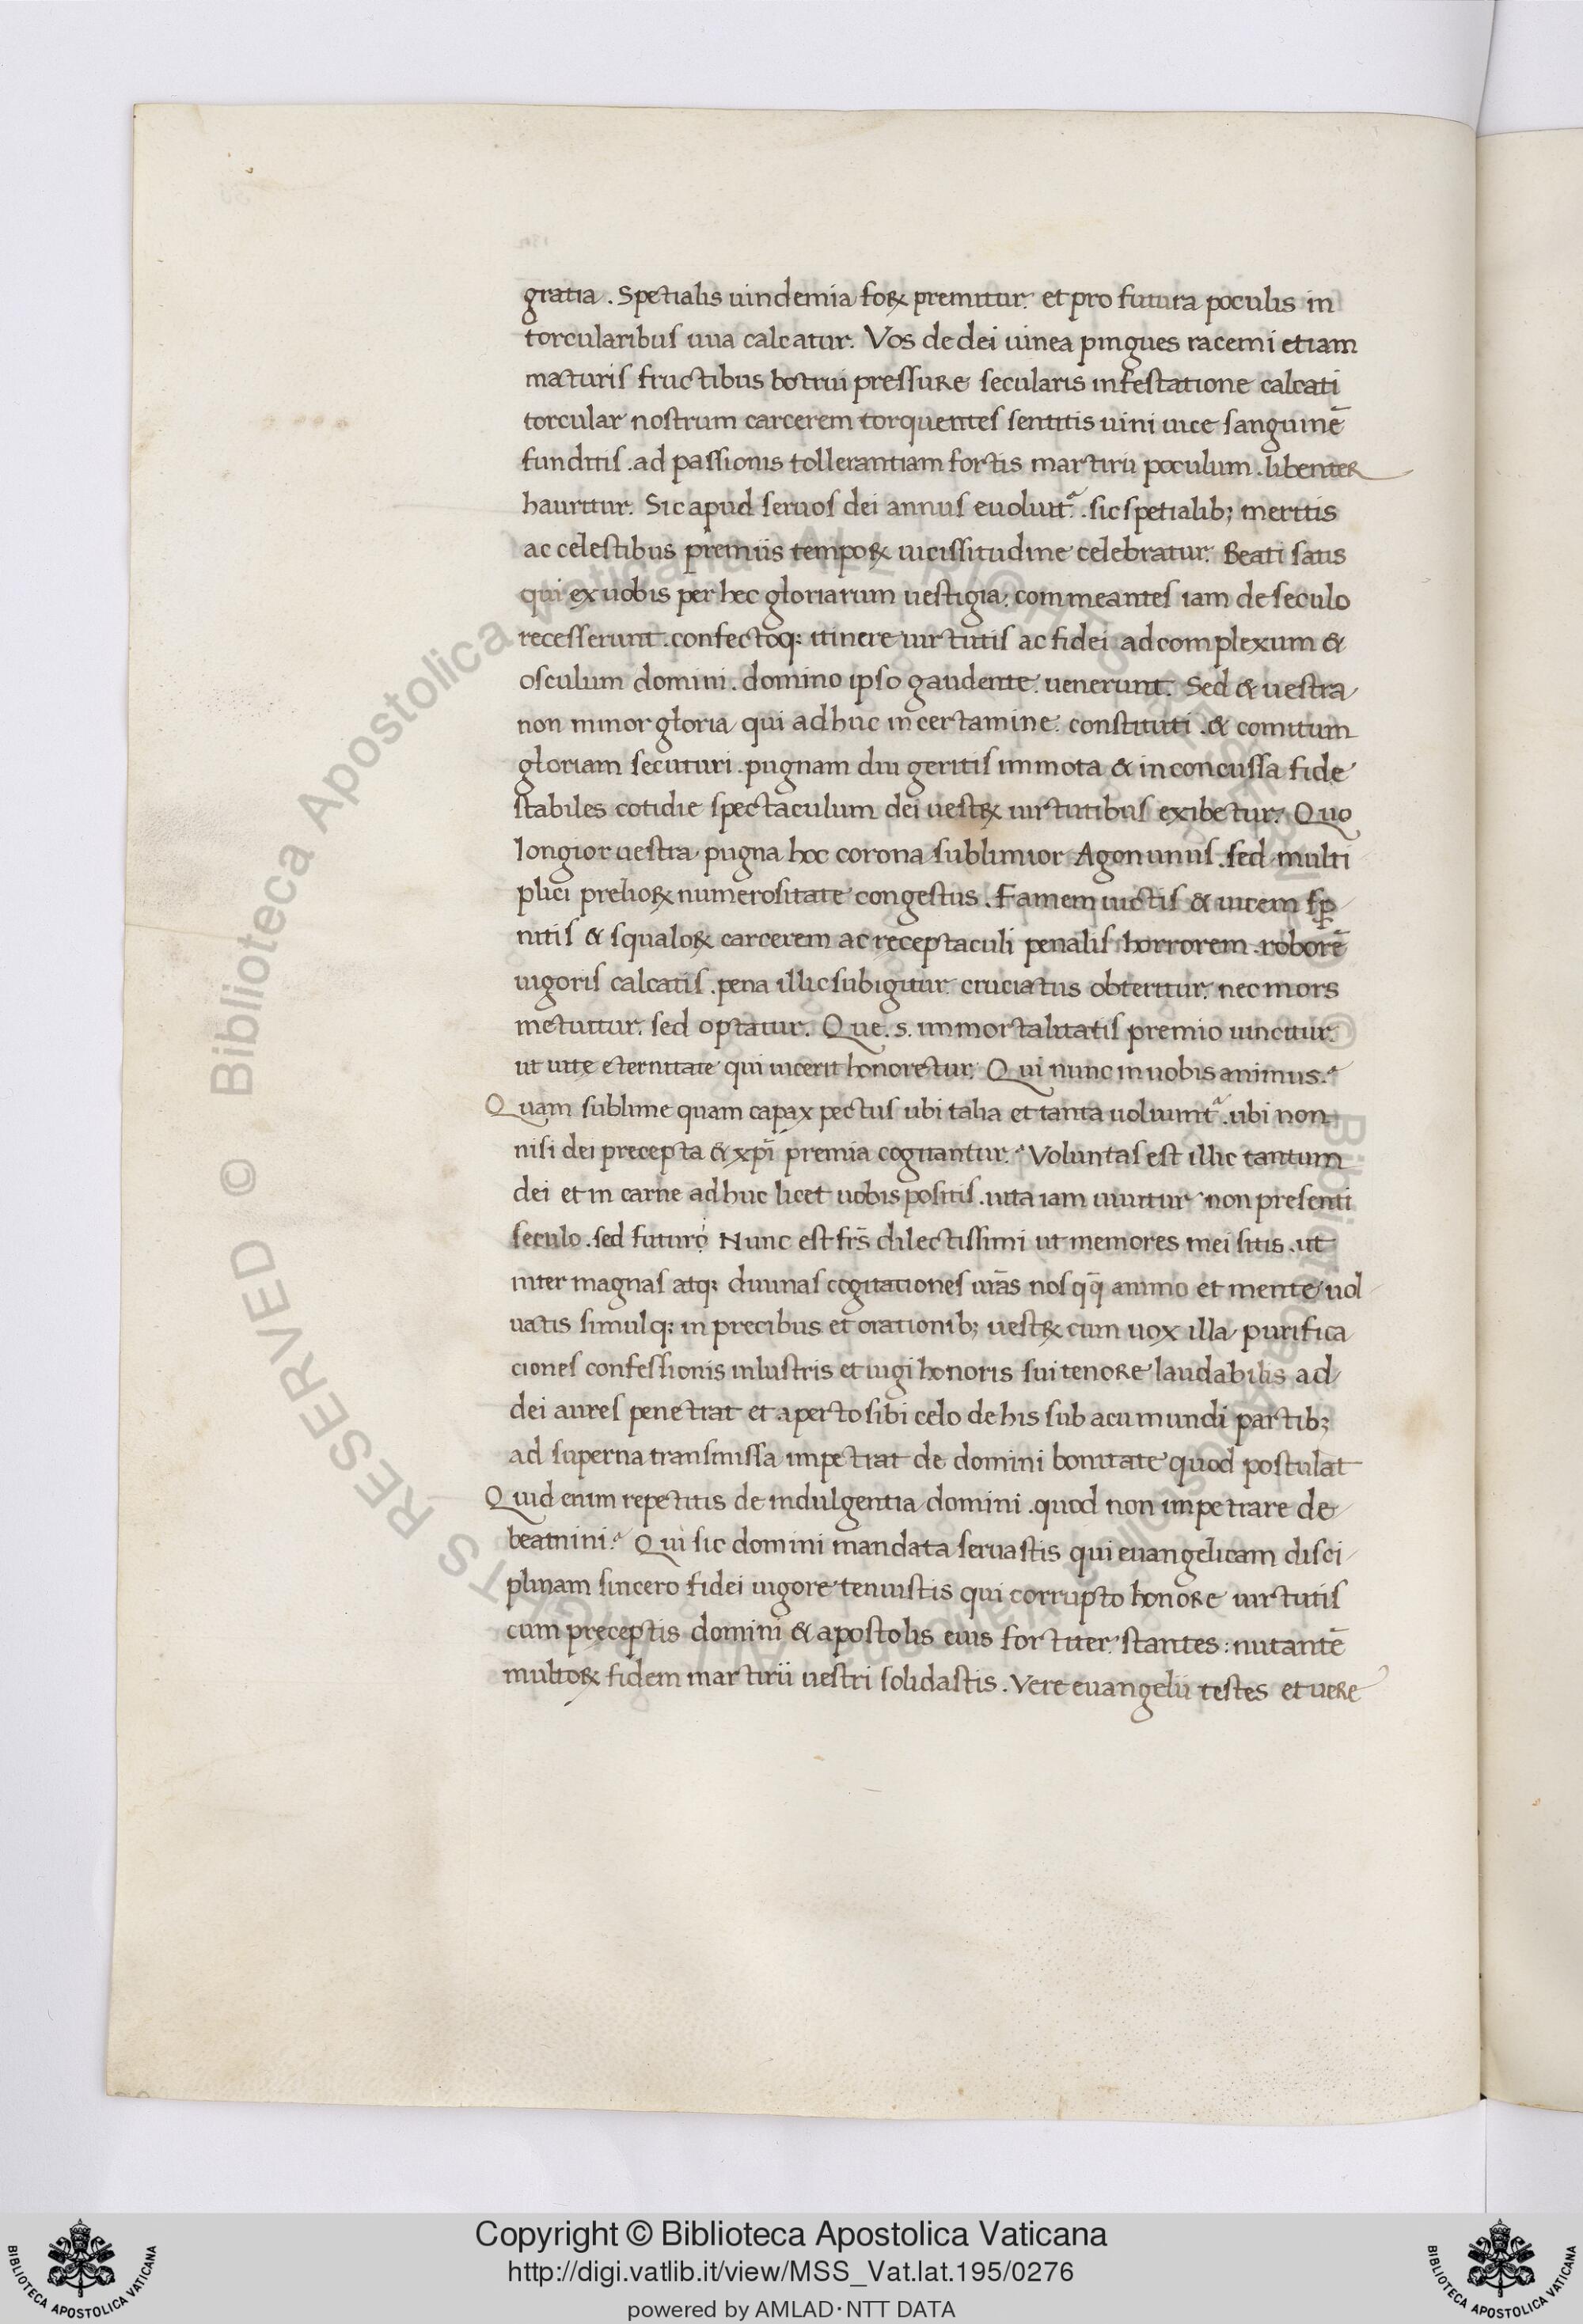 gratia . Spetialis uindemia foꝝ premitur. et pro futura poculis in
torcularibus uua calcatur. Vos de dei uinea pingues racemi etiam
maturis fructibus botrui pressure secularis infestatione calcati
torcular nostrum carcerem torquentes sentitis uini uice sanguinē
funditis . ad passionis tollerantiam fortis martirii poculum . libenter
hauritur. Sic apud seruos dei annus euoluit᷑ . sic spetialib; meritis
ac celestibus premiis tempoꝝ uicissitudine celebratur. Beati satis
qui ex uobis per hec gloriarum uestigia: commeantes iam de seculo
recesserunt . confectoq: itinere uirtutis ac fidei ad complexum &
osculum domini . domino ipso gaudente uenerunt. Sed & uestra
non minor gloria qui adhuc in certamine constituti . & comitum
gloriam secuturi . pugnam diu geritis immota & inconcussa fide
stabiles cotidie spectaculum dei uestꝝ uirtutibus exibetur. Quo
longior uestra pugna hoc corona sublimior Agon unus . sed multi
plici prelioꝝ numerositate congestus . Famem uictis & uitem sꝑ
nitis & squaloꝝ carcerem ac receptaculi penalis horrorem . roborē
uigoris calcatis . pena illic subigitur. cruciatus obteritur. nec mors
metuitur. sed optatur. Que . s. immortalitatis premio uincitur.
ut uite eternitate qui uicerit honoretur. Qui nunc in uobis animus.
Quam sublime quam capax pectus ubi talia et tanta uoluunt᷑ . ubi non
nisi dei precepta & xp̄i premia cogitantur. Voluntas est illic tantum
dei et in carne adhuc licet uobis positis . uita iam uiuitur non presenti
seculo . sed futuro Nunc est frs̄ dilectissimi ut memores mei sitis . ut
inter magnas atq: diuinas cogitationes ur̄as nos qq̄ animo et mente uol
uatis simulq: in precibus et orationib; uestꝝ cum uox illa purifica
ciones confessionis inlustris et iugi honoris sui tenore laudabilis ad
dei aures penetrat et aperto sibi celo de his sub acu mundi partib;
ad superna transmissa impetrat de domini bonitate quod postulat
Quid enim repetitis de indulgentia domini . quod non impetrare de
beatnini. Qui sic domini mandata seruastis qui euangelicam disci
plinam sincero fidei uigore tenuistis qui corrupto honore uirtutis
cum preceptis domini & apostolis eius fortiter stantes: nutantē
multoꝝ fidem martirii uestri solidastis . Vere euangelii testes et uere
Copyright © Biblioteca Apostolica Vaticana
http://digi.vatlib.it/view/MSS_Vat.lat.195/0276
powered by AMLAD·NTT DATA